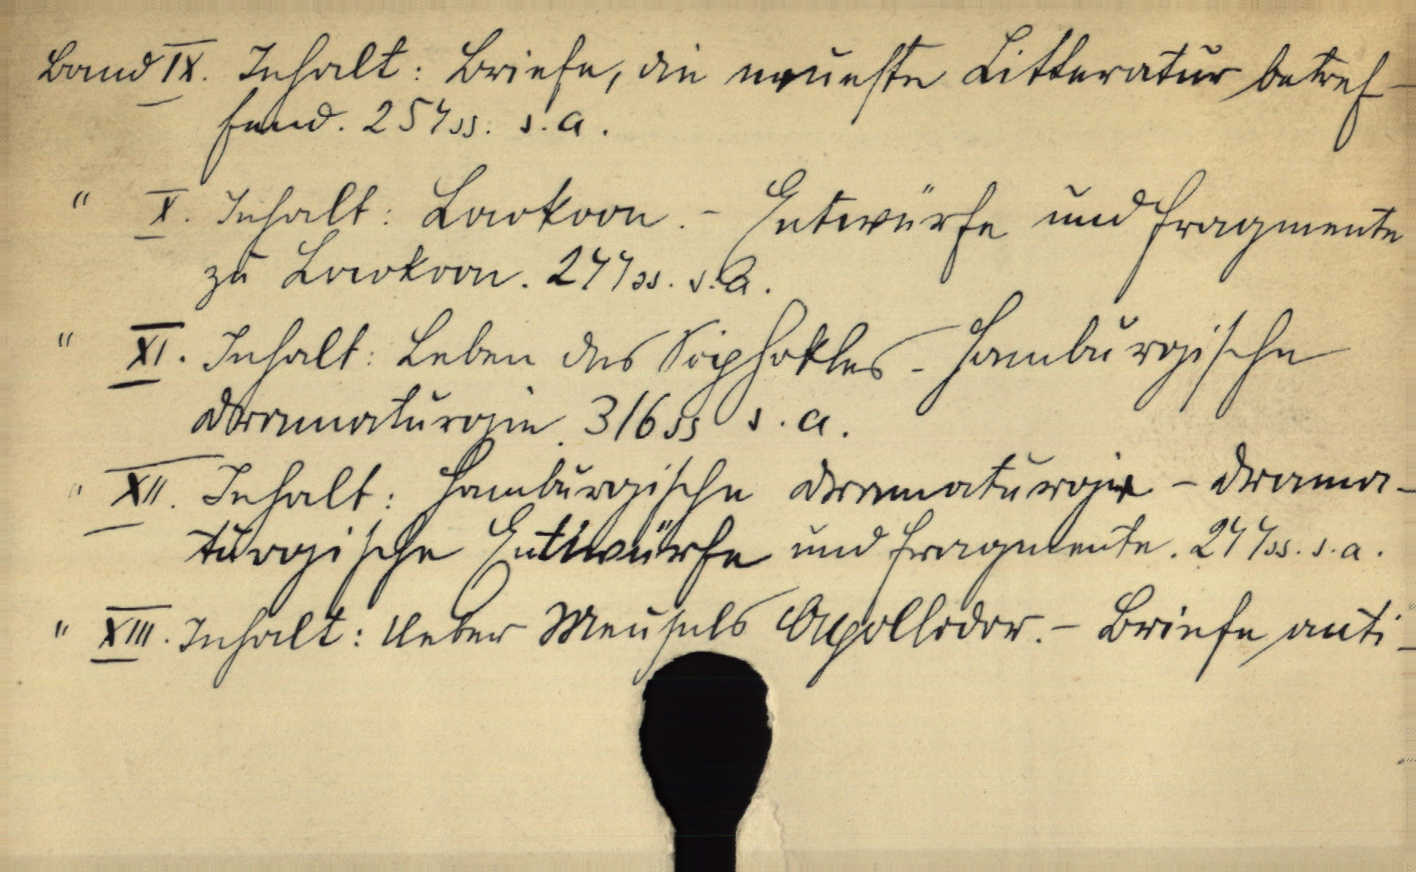 Band IX. Inhalt: Briefe, die neueste Litteratur betref-
fend. 257 ss. s. a.
" X. Inhalt: Laokoon. - Entwürfe und Fragmente
zu Laokoon. 277 ss. s. a.
" XI. Inhalt: Leben des Sophokles - Hamburgische
Dramaturgie. 316 ss s. a.
" XII. Inhalt: Hamburgische Dramaturgie - Drama-
turgische Entwürfe und Fragmente. 277 ss. s. a.
" XIII. Inhalt: Ueber Meusels Apollodor. - Briefe anti-